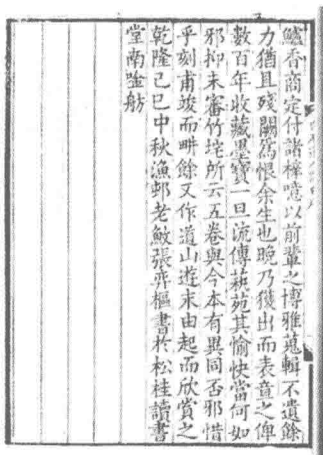 鱸香商定付諸梓噫以前輩之博雅蒐輯不遺餘
力猶且殘闕為恨余生也晚乃獲出而表章之俾
數百年收藏墨寶一旦流傳蓺苑其愉快當何如
邪抑未審竹垞所云五卷與今本有異同否邪惜
乎刻甫竣而畊餘又作道山遊末由起而欣賞之
乾隆己巳中秋漁邨老鮍張弈樞書於松桂讀書
堂南唫舫